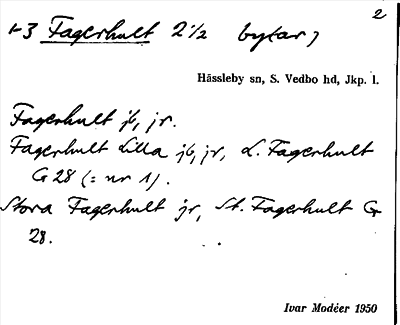 2
1-3 Fagerhult 2 1/2 bytar,
Hässleby sn, S. Vedbo hd, Jkp. l.
Fagerhult jb, jr.
Fagerhult Lilla jb, jr, L. Fagerhult
G 28 (= nr 1).
Stora Fagerhult jr, St. Fagerhult G
28.
Ivar Modéer 1950